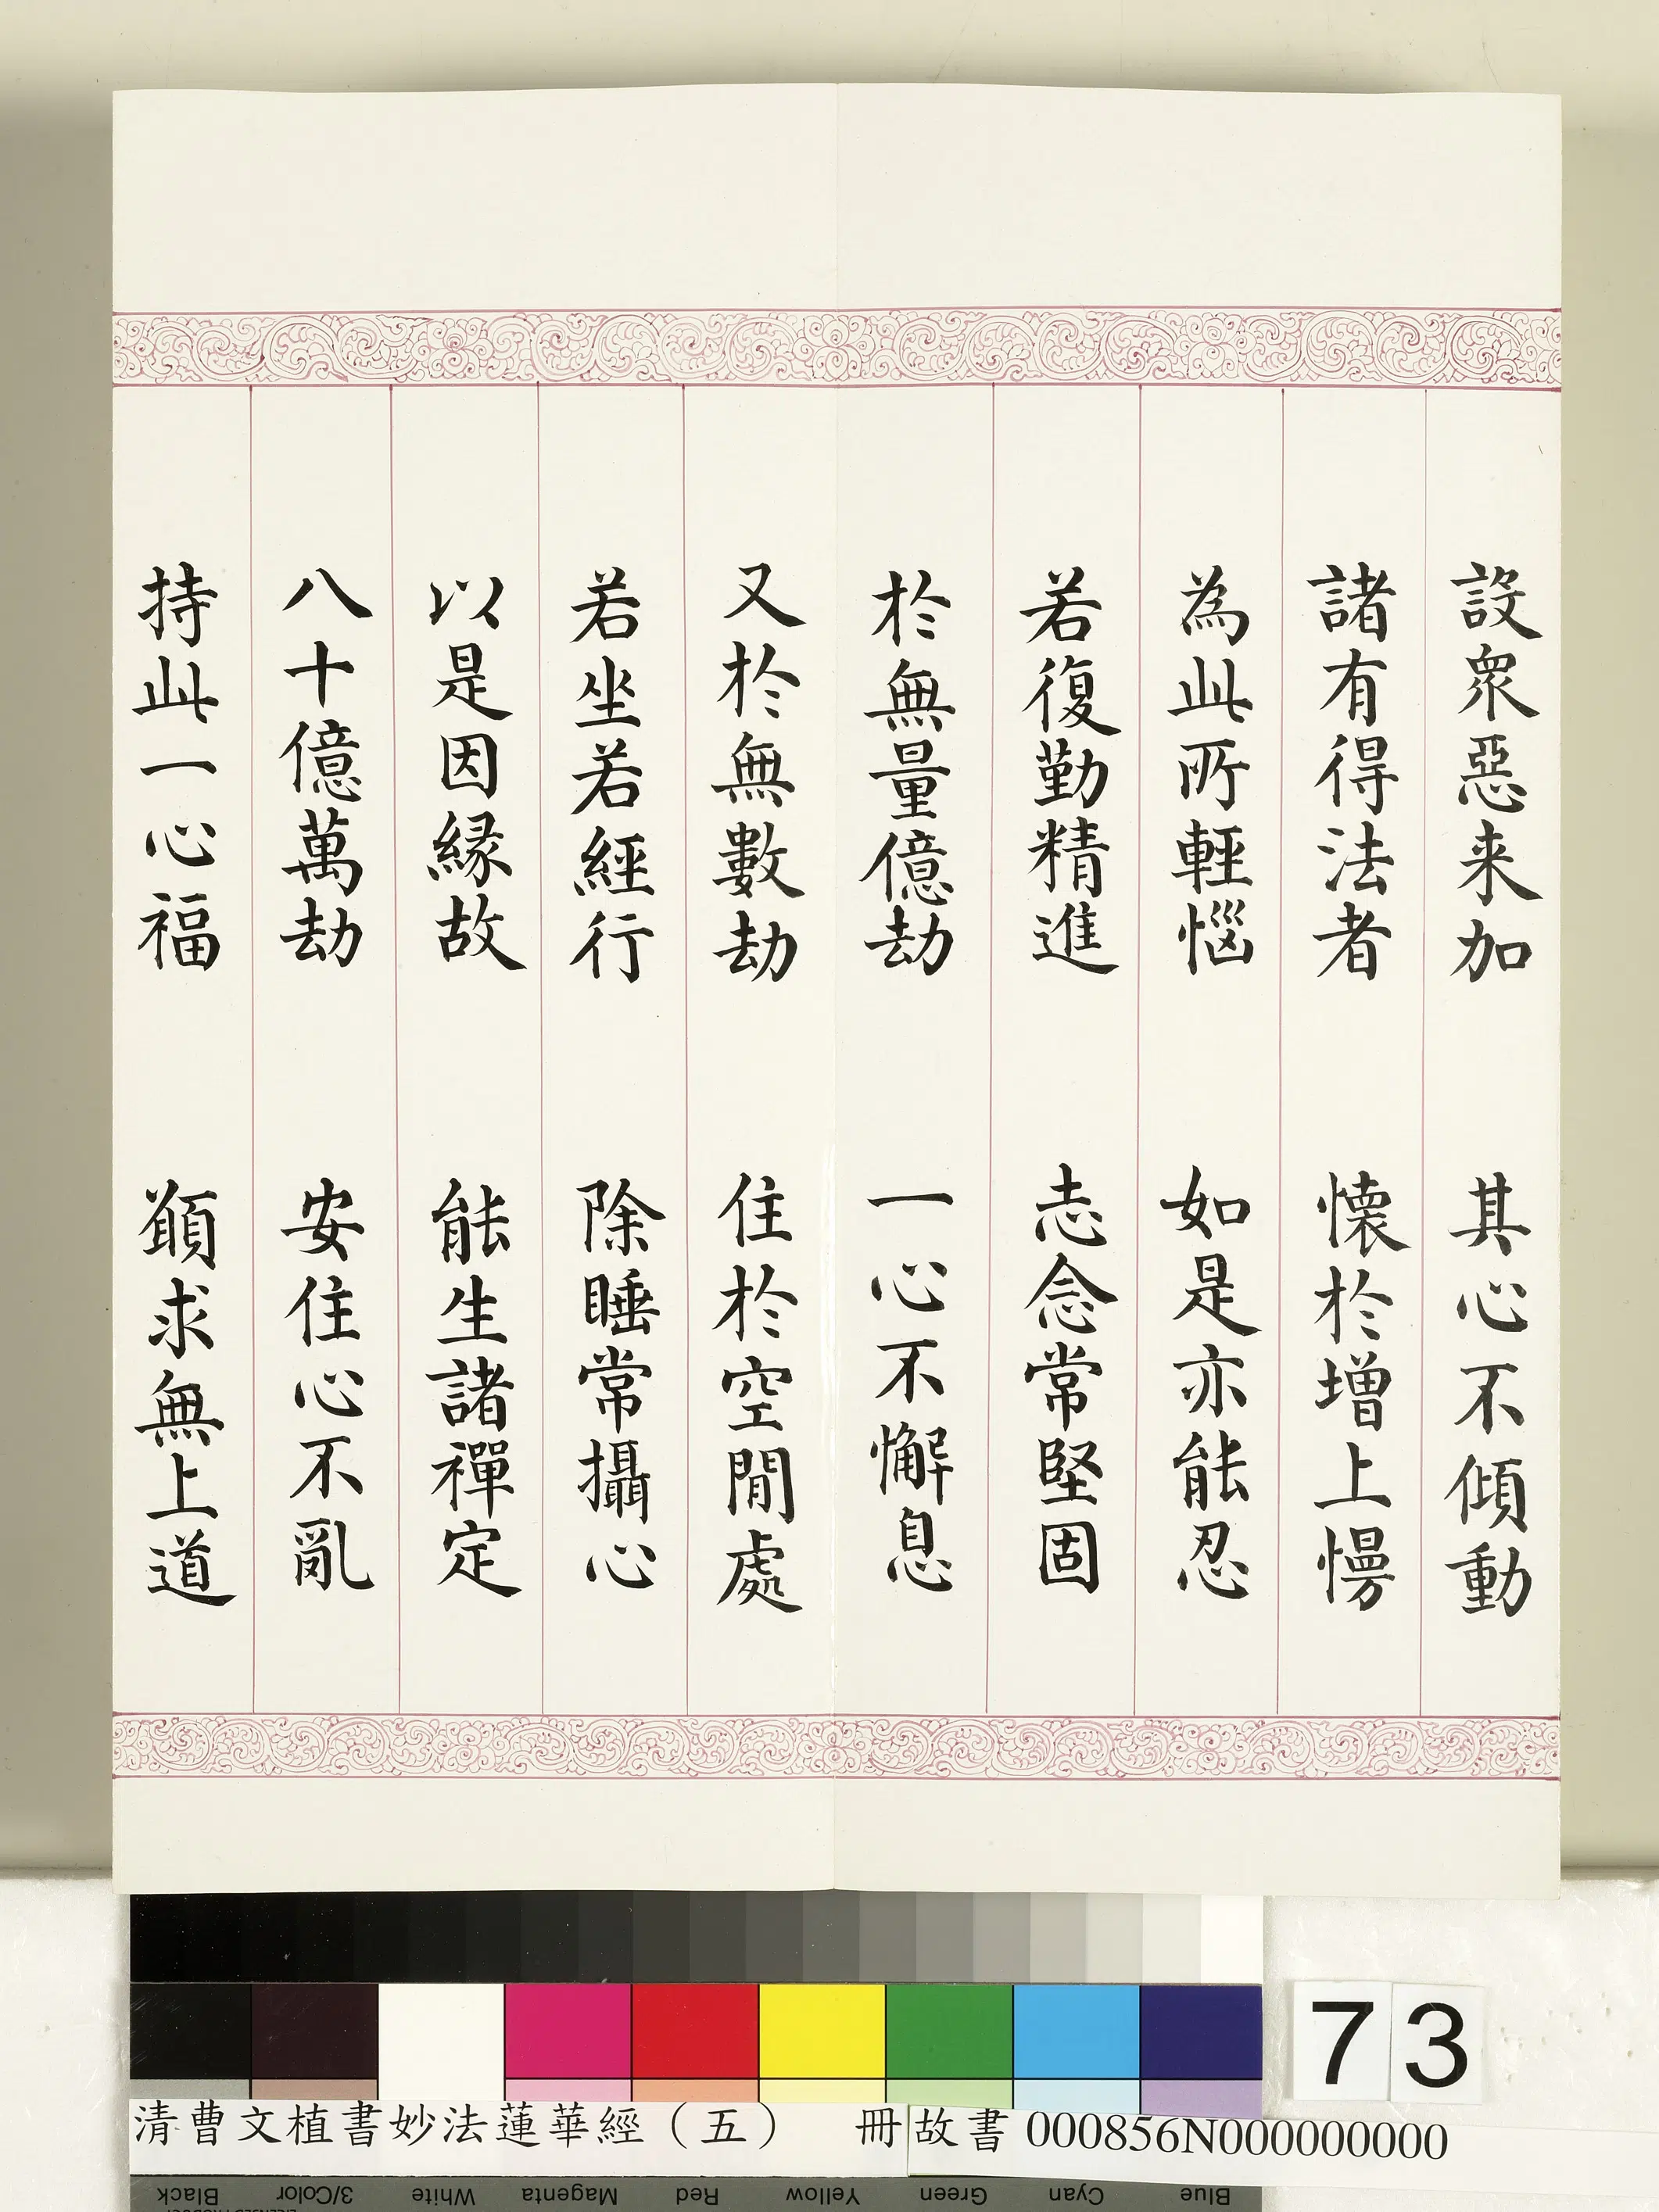 設衆惡来加　其心不傾動
諸有得法者　懐於增上慢
為此所輕惱　如是亦能忍
若復勤精進　志念常堅固
於無量億劫　一心不懈息
又於無數劫　住於空閒處
若坐若經行　除睡常攝心
以是因縁故　能生諸禪定
八十億萬劫　安住心不亂
持此一心福　願求無上道
73
清曹文植書妙法蓮華經（五）　冊 故書 000856N000000000
Black 3/Color White Magenta Red Yellow Green Cyan Blue